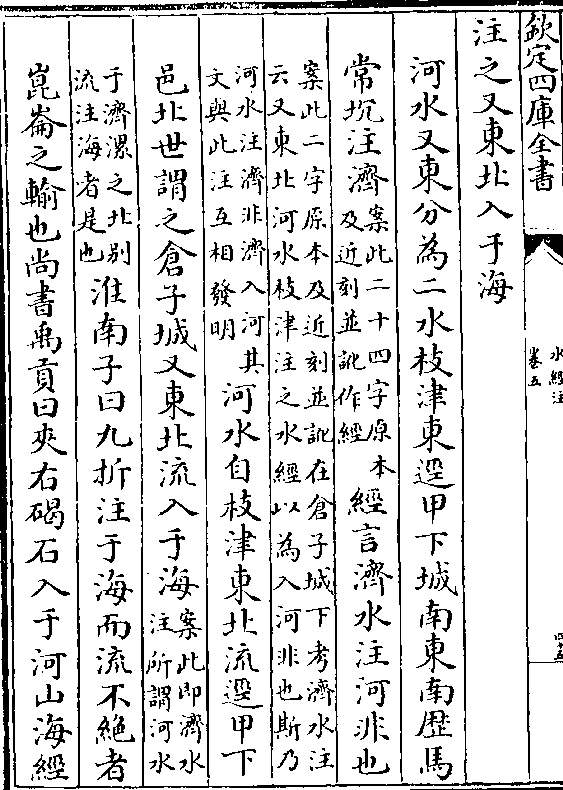 欽定四庫全書
水經注
卷五
注之又東北入于海
河水又東分為二水枝津東逕甲下城南東南歴馬
常坈注濟案此二十四字原本及近刻並訛作經經言濟水注河非也
案此二字原本及近刻並訛在倉子城下考濟水注
云又東北河水枝津注之水經以為入河非也斯乃
河水注濟非濟入河其文與此注互相發明河水自枝津東北流逕甲下
邑北世謂之倉子城又東北流入于海案此即濟水注所謂河水
于濟漯之北别流注海者是也淮南子曰九折注于海而流不絶者
崑崙之輸也尚書禹貢曰夾右碣石入于河山海經